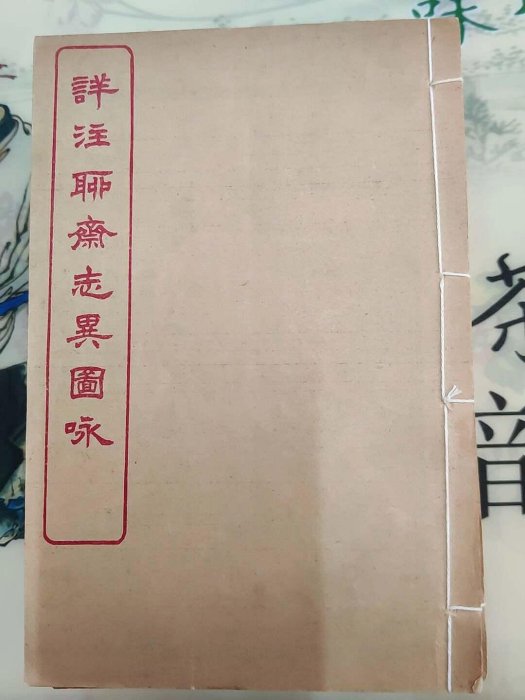 詳注聊齋志異圖咏
茶
韻